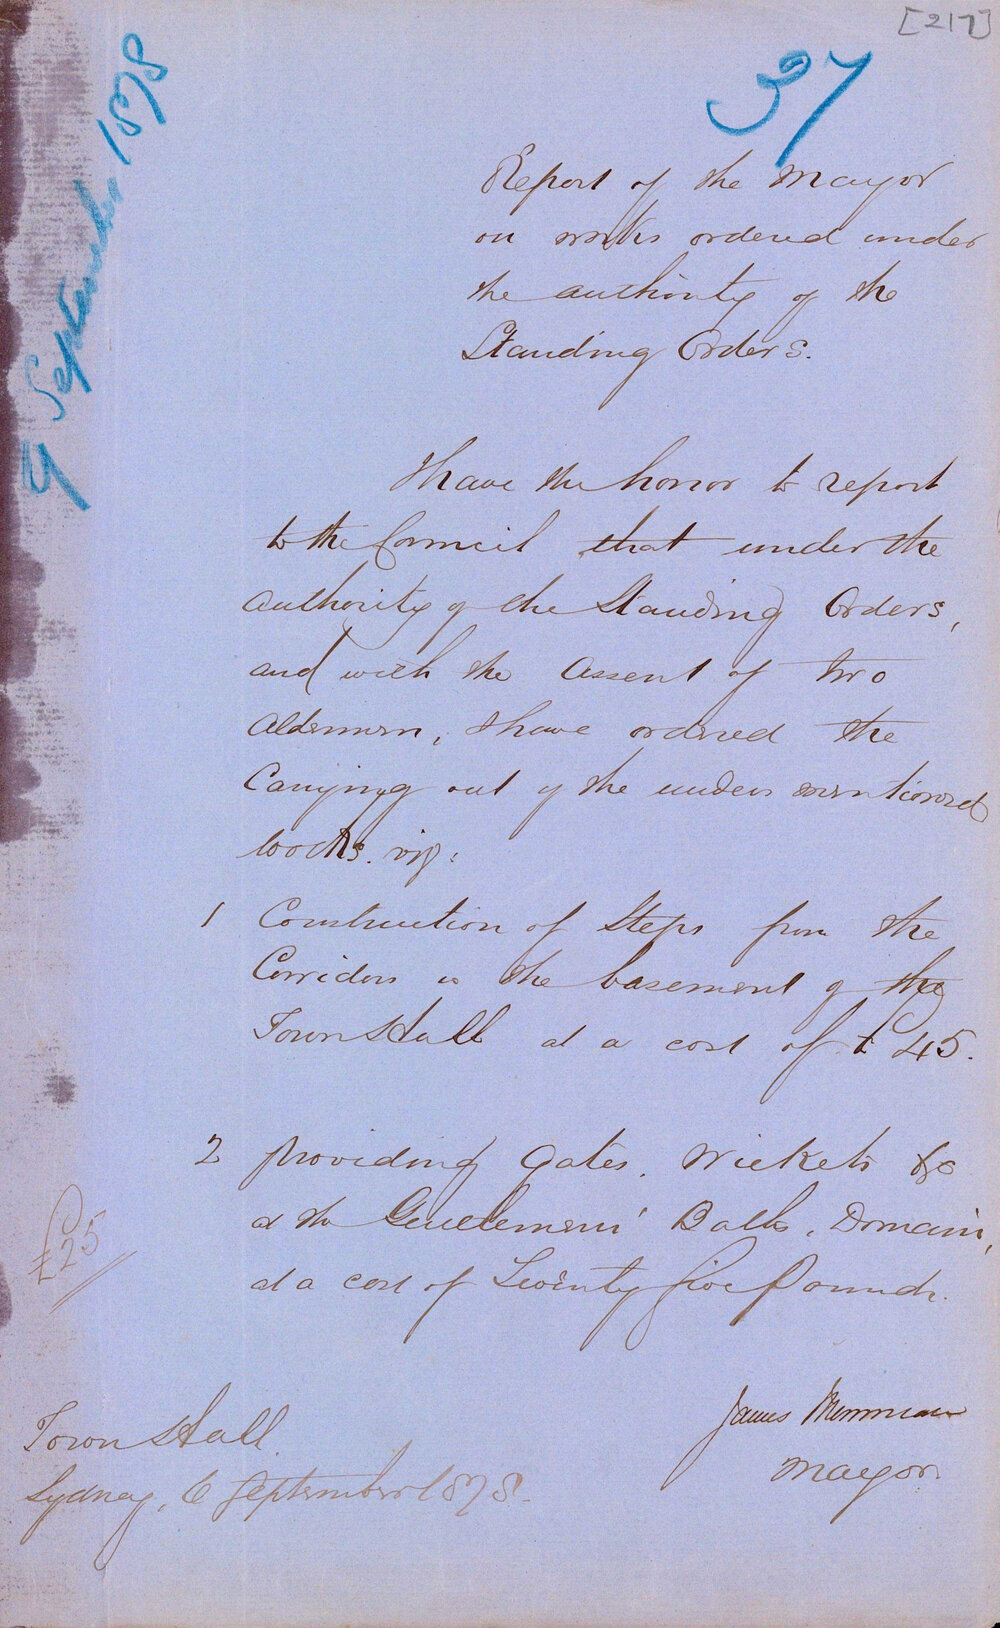 [217]
37
9 September 1878
Report of the Mayor
on works ordered under
the authority of the
Standing Orders.
I have the honor to report
to the Council that under the
authority of the Standing Orders,
and with the assent of two
Aldermen, I have ordered the
Carrying out of the under mentioned
works. viz:
1 Construction of Steps from the
Corridor in the basement of the
Town Hall at a cost of £45.
2 providing Gates, Wickets &c
at the Gentlemens' Baths, Domain,
at a cost of Twenty five Pounds.
£25
James Merriman
Mayor.
Town Hall.
Sydney, 6 September 1878.